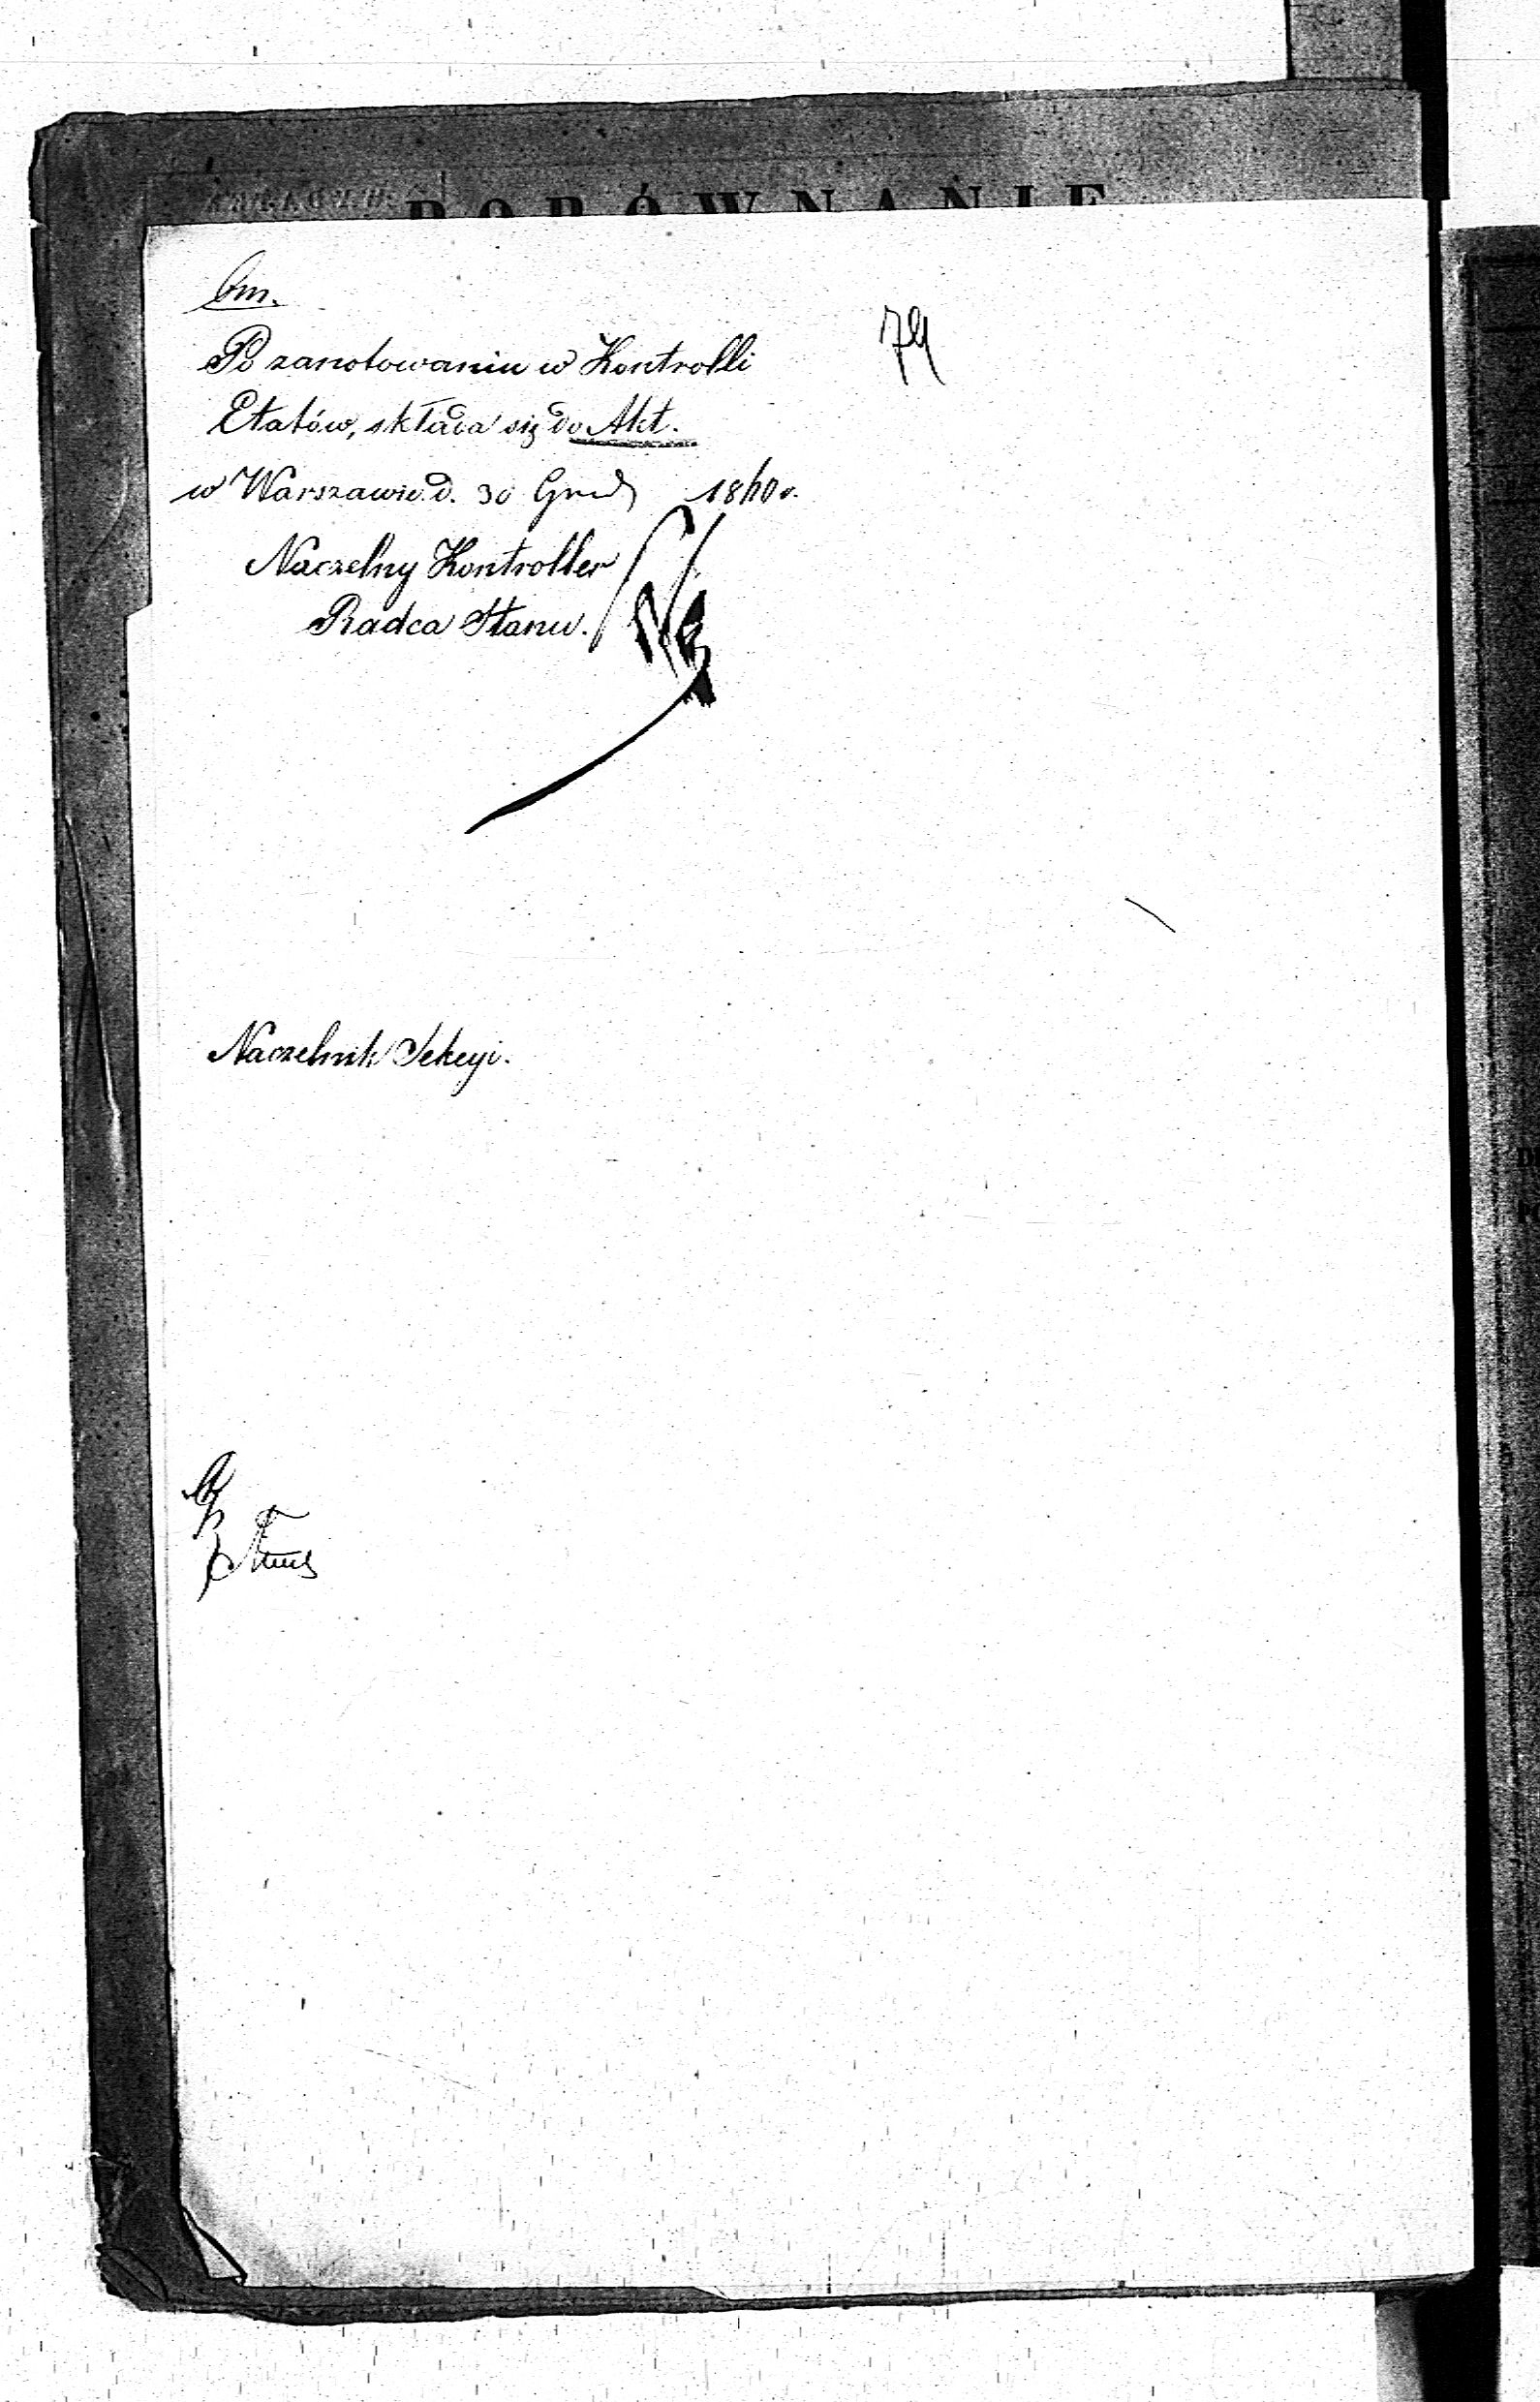 PORÓWNANIE
79
Po zanotowaniu w Kontrolli
Etatów, składa się do Akt.
w Warszawie d. 30 Grud 1860 r.
Naczelny Kontroller
Radca Stanu.
Naczelnik Sekcyi.